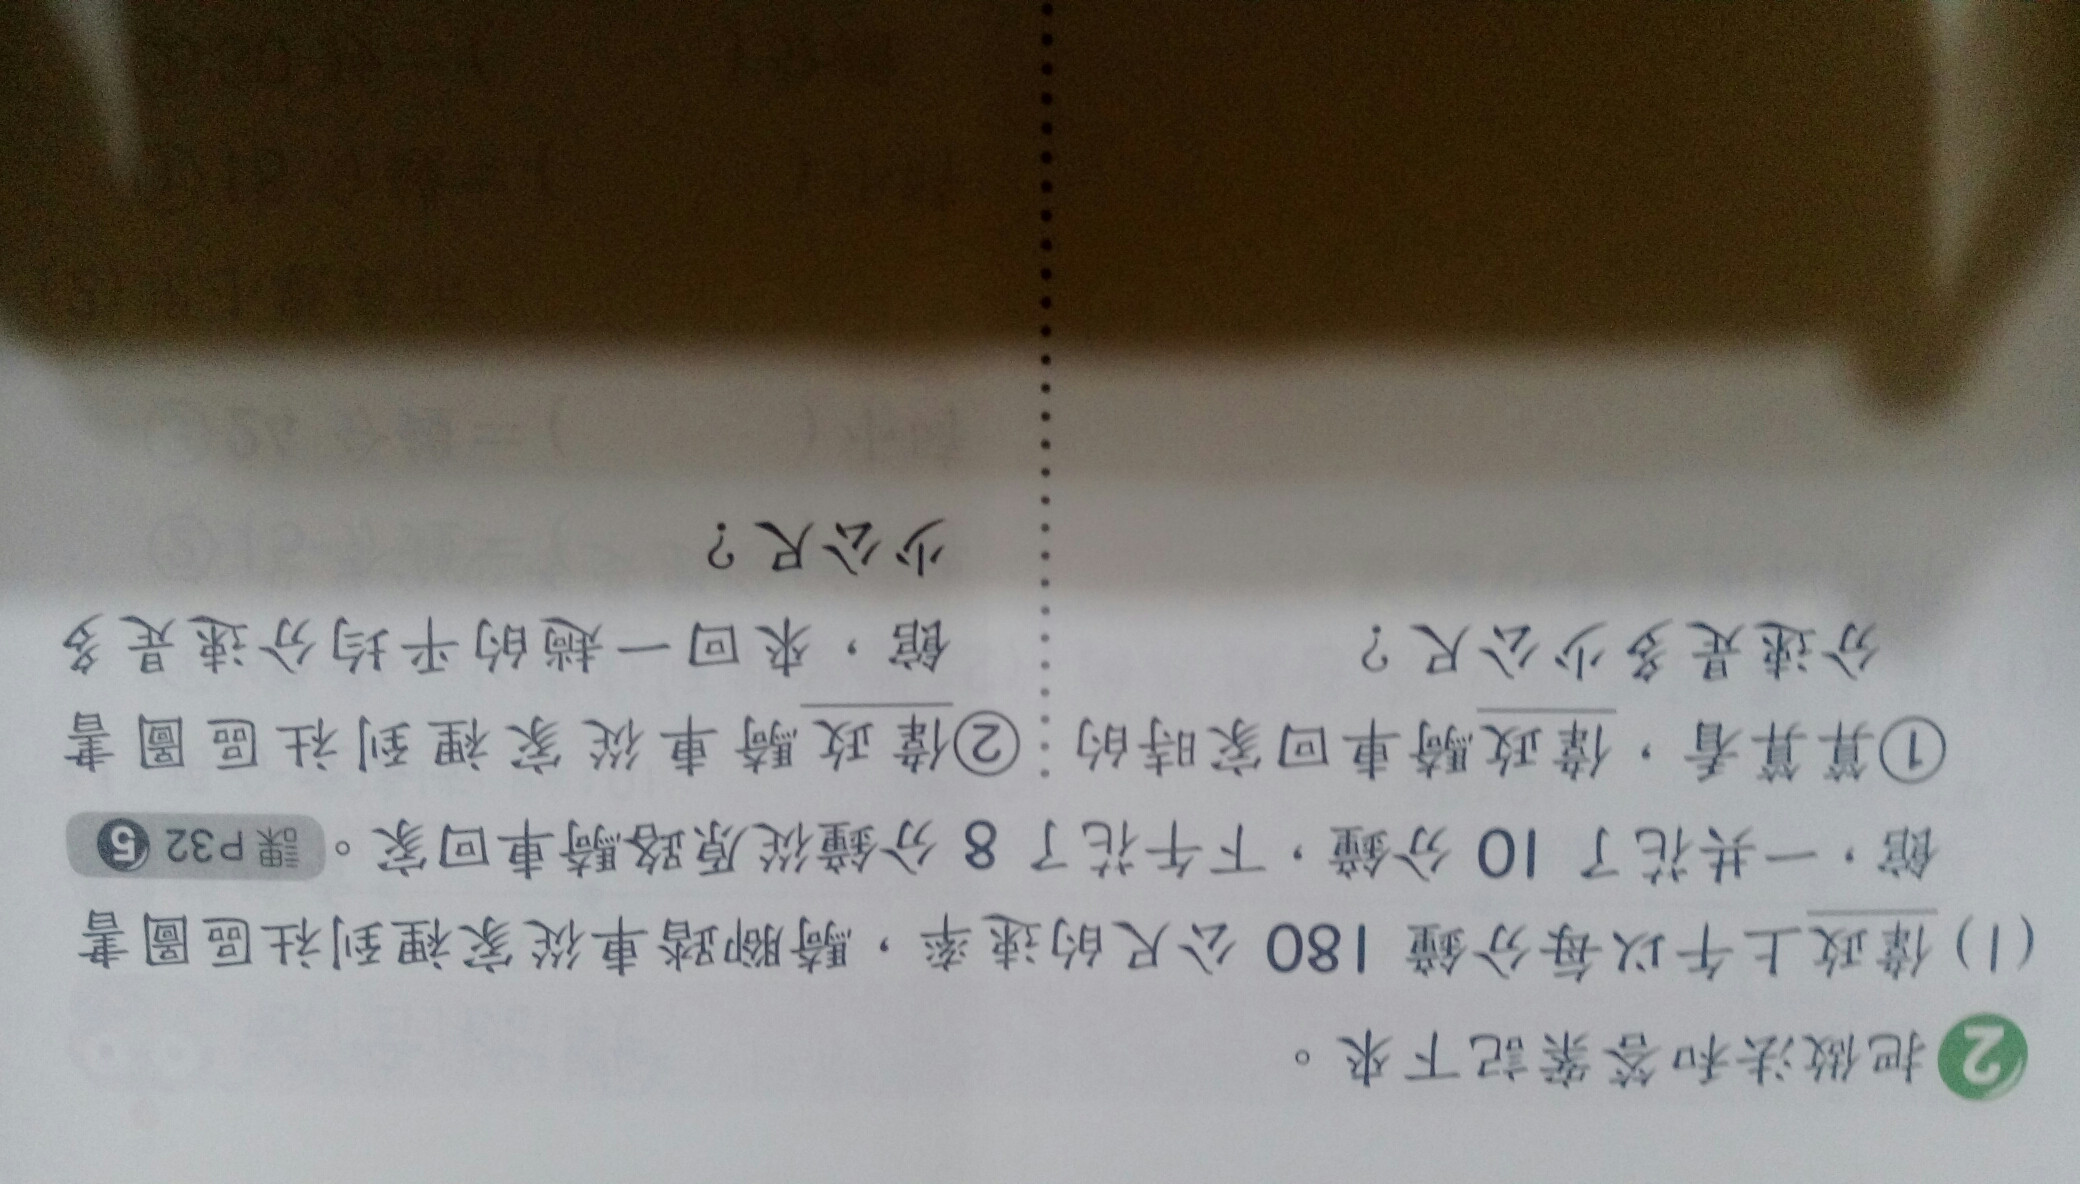 2 把做法和答案記下來。
(1)偉政上午以每分鐘 180 公尺的速率，騎腳踏車從家裡到社區圖書
館，一共花了 10 分鐘，下午花了 8 分鐘從原路騎車回家。 課P32 5
①算算看，偉政騎車回家時的
分速是多少公尺？
②偉政騎車從家裡到社區圖書
館，來回一趟的平均分速是多
少公尺？